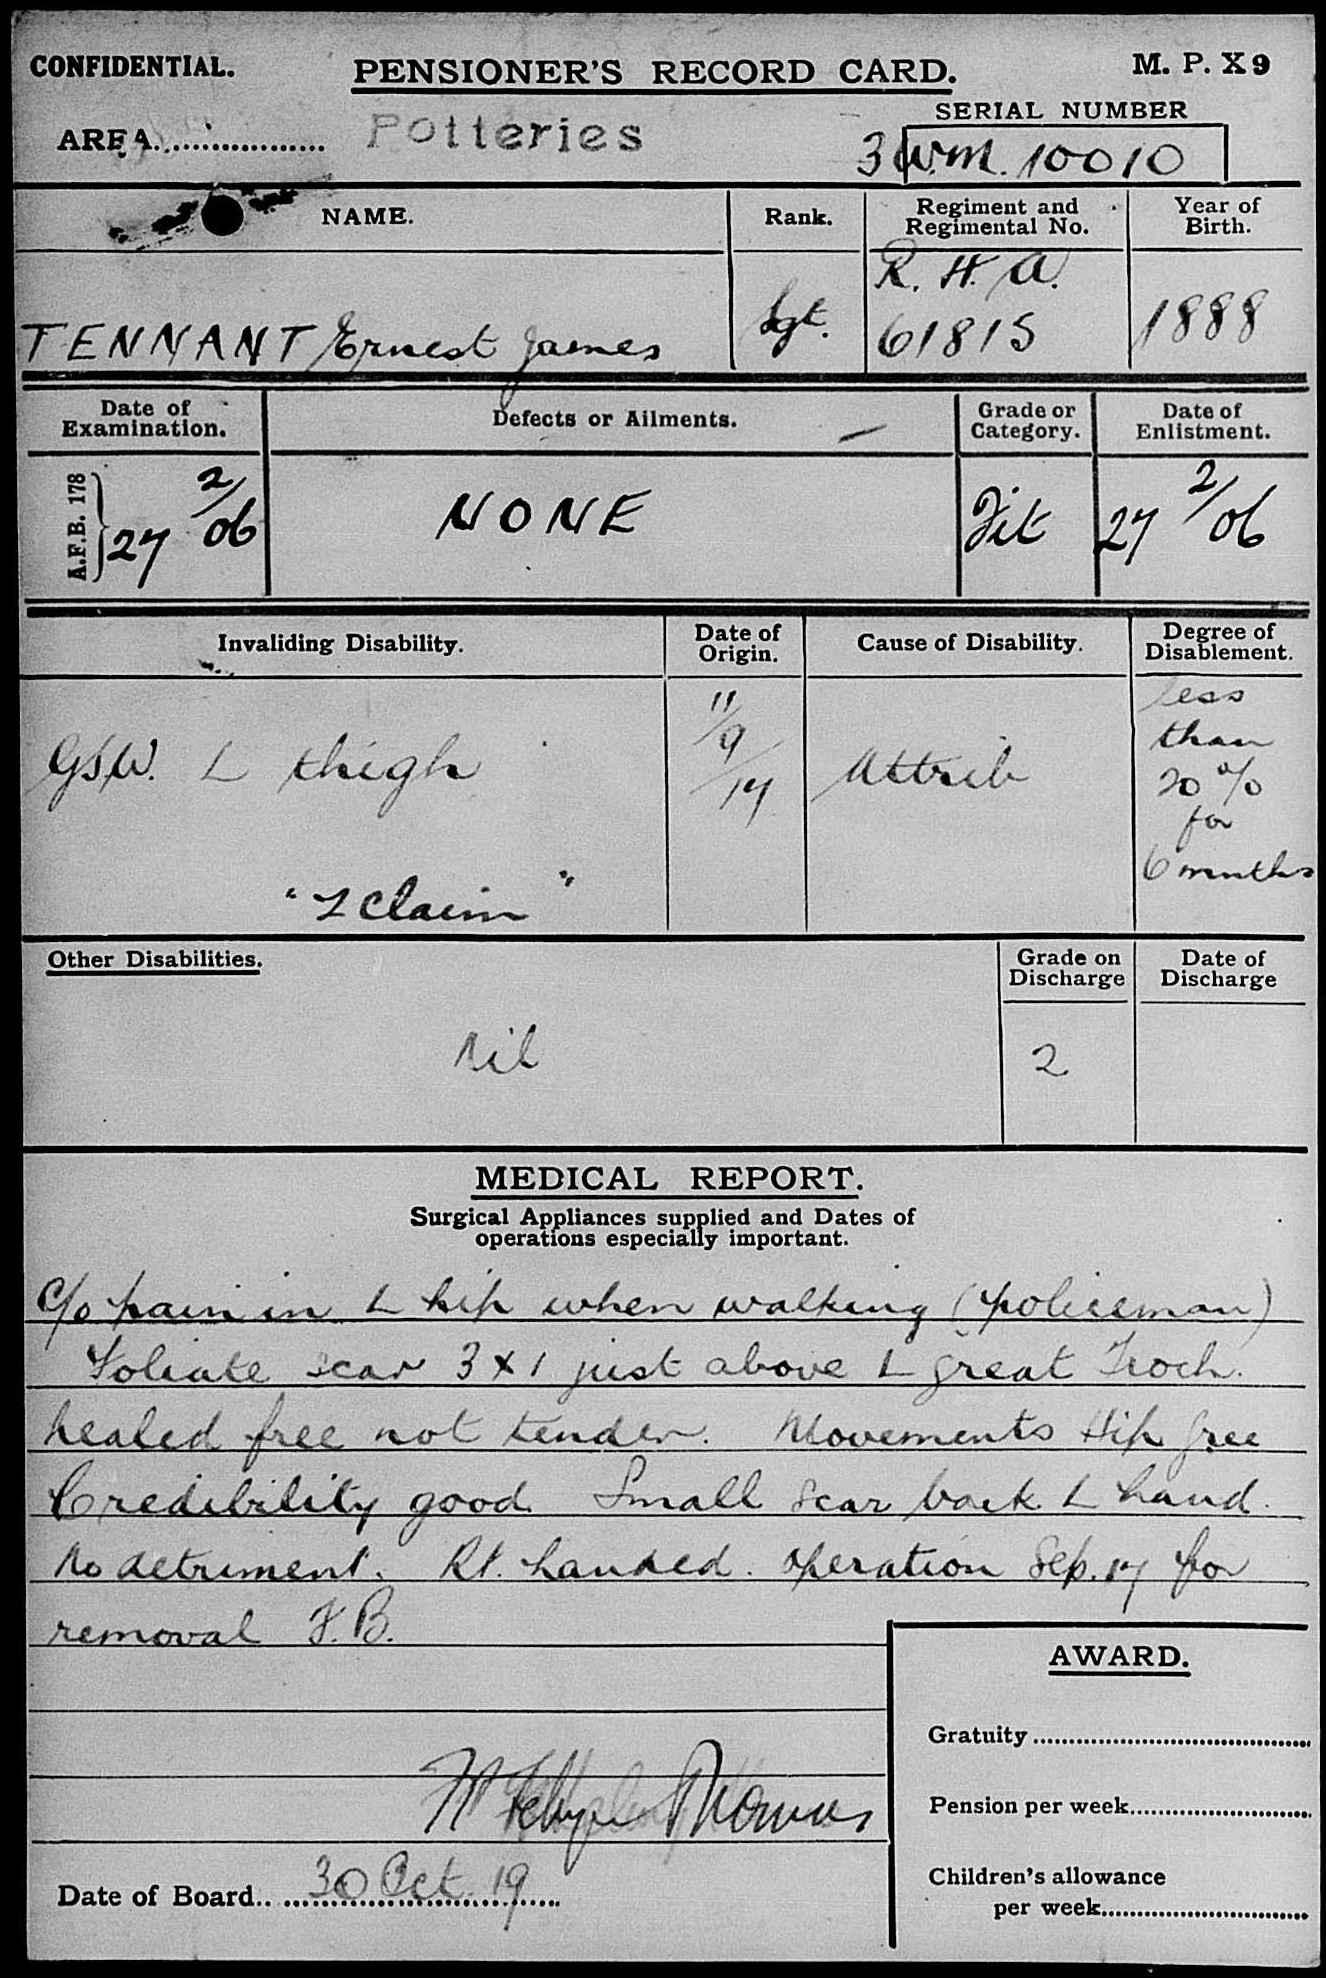 CONFIDENTIAL.
PENSIONER'S RECORD CARD.
M. P. X 9
AREA
Potteries
SERIAL NUMBER
3 W.M. 10010
NAME.
Rank.
Regiment and Regimental No.
Year of Birth.
TENNANT Ernest James
Sgt.
R. H. A.
61815
1888
Date of Examination.
Defects or Ailments.
Grade or Category.
Date of Enlistment.
A.F.B. 178
27 2/06
NONE
Fit
27 2/06
Invaliding Disability.
Date of Origin.
Cause of Disability.
Degree of Disablement.
GSW. L thigh
11/9/17
Attrib
less
than
20 %
for
6 months
"I Claim"
Other Disabilities.
Grade on Discharge
Date of Discharge
Nil
2
MEDICAL REPORT.
Surgical Appliances supplied and Dates of
operations especially important.
C/o pain in L hip when walking (policeman)
Foliate scar 3 x 1 just above L great Troch.
healed free not tender. Movements Hip free
Credibility good Small scar back L hand.
No detriment. Rt. handed. Operation Sep. 17 for
removal F.B.
AWARD.
Gratuity
Pension per week
Thomas
Children's allowance
per week
Date of Board 30 Oct. 19